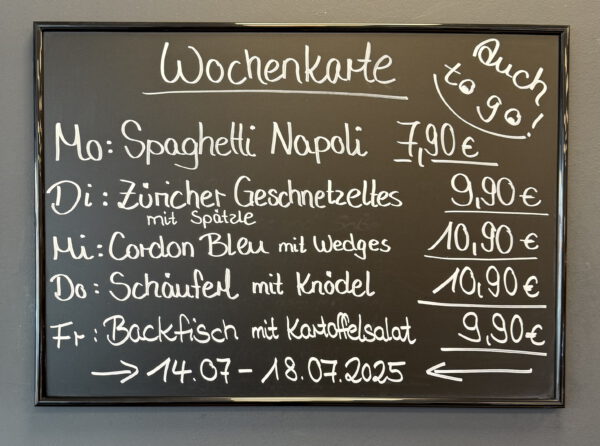 Wochenkarte
Auch
to go!
Mo: Spaghetti Napoli 7,90 €
Di: Züricher Geschnetzeltes 9,90 €
mit Spätzle
Mi: Cordon Bleu mit Wedges 10,90 €
Do: Schäuferl mit Knödel 10,90 €
Fr: Backfisch mit Kartoffelsalat 9,90 €
→ 14.07 - 18.07.2025 ←